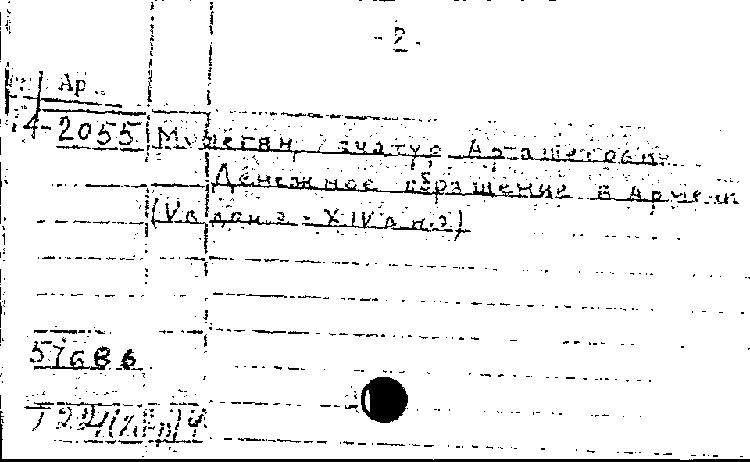 - 2 -
Ар
4-2055 Мушегян Хачатур Арташесович
Денежное обращение в Армении
(V в до н.э - XIV в н.э)
57686